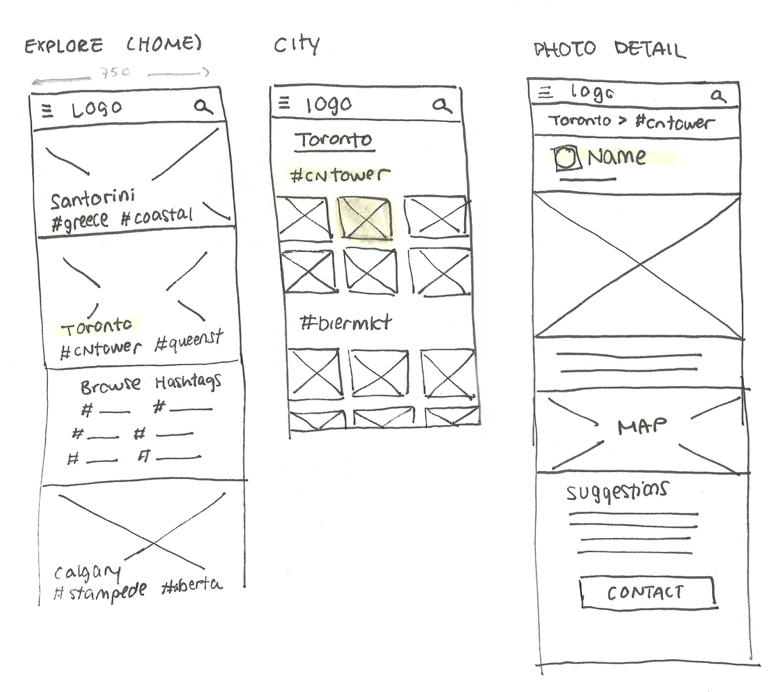 EXPLORE (HOME)
750
LOGO
Santorini
#greece #coastal
Toronto
#CNtower #queenst
Browse Hashtags
#
#
#
#
#
#
Calgary
#stampede #alberta
City
logo
Toronto
#CNtower
#biermkt
PHOTO DETAIL
logo
Toronto > #cntower
Name
MAP
suggestions
CONTACT